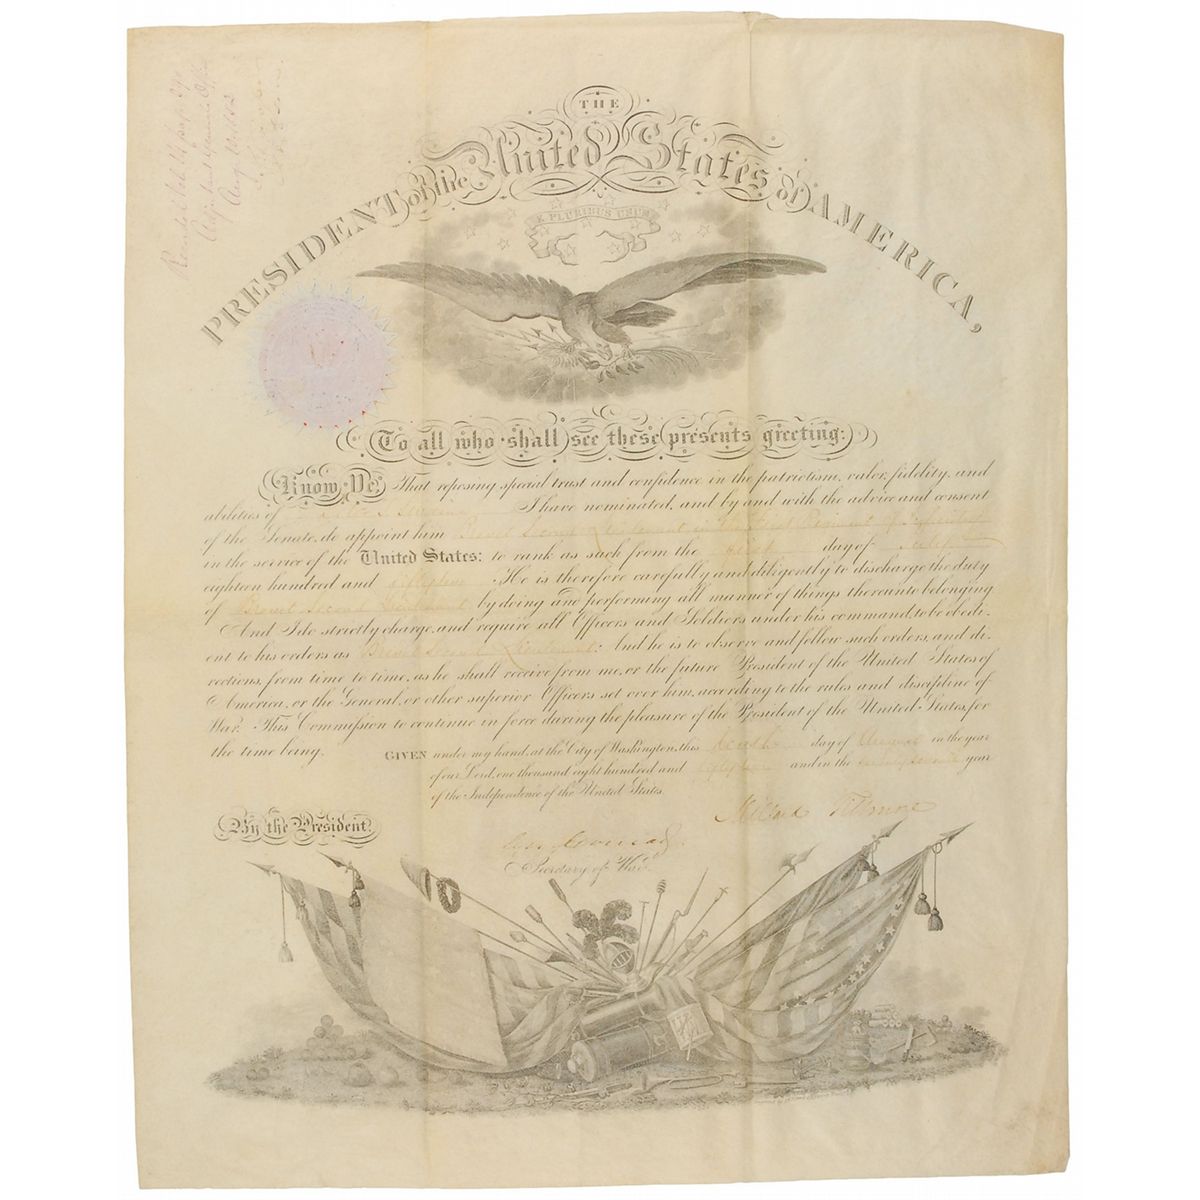 THE
PRESIDENT of the United States of AMERICA,
E PLURIBUS UNUM
Aug 10. 1852
To all who shall see these presents greeting:
Know Ye, That reposing special trust and confidence in the patriotism, valor, fidelity, and
abilities of I have nominated, and by and with the advice and consent
of the Senate, do appoint him Brevet Second Lieutenant in the First Regiment of
in the service of the United States: to rank as such from the first day of July
eighteen hundred and . He is therefore carefully and diligently to discharge the duty
of Brevet Second Lieutenant by doing and performing all manner of things thereunto belonging
And I do strictly charge, and require all Officers and Soldiers under his command, to be obedi-
ent to his orders as Brevet Second Lieutenant: And he is to observe and follow such orders, and di-
rections, from time to time, as he shall receive from me, or the future President of the United States of
America, or the General, or other superior Officers set over him, according to the rules and discipline of
War. This Commission to continue in force during the pleasure of the President of the United States, for
the time being.
GIVEN under my hand, at the City of Washington, this tenth day of August in the year
of our Lord, one thousand eight hundred and and in the seventy seventh year
of the Independence of the United States.
Millard Fillmore
By the President.
C. M. Conrad
Secretary of War.